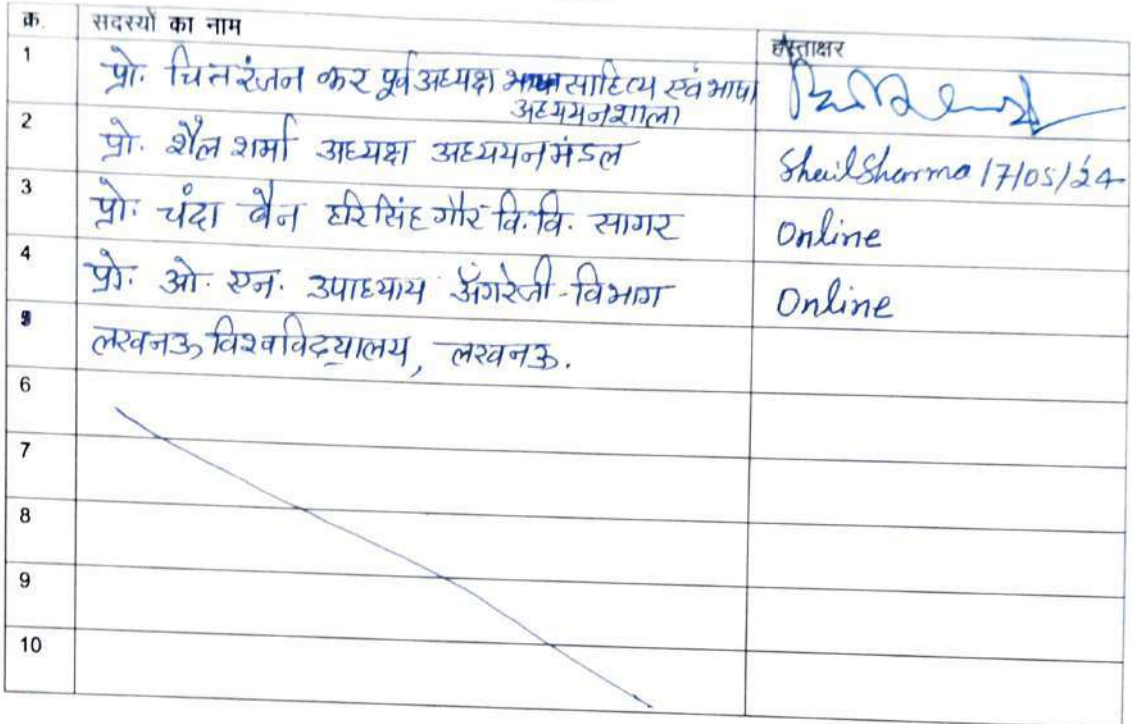 क्र. सदस्यों का नाम हस्ताक्षर
1 प्रो. चित्तरंजन कर पूर्व अध्यक्ष साहित्य एवं भाषा
अध्ययनशाला
2 प्रो. शैल शर्मा अध्यक्ष अध्ययनमंडल ShailSharma 17/05/24
3 प्रो. चंदा बैन हरिसिंह गौर वि.वि. सागर Online
4 प्रो. ओ. एन. उपाध्याय अँगरेजी-विभाग Online
5 लखनऊ विश्वविद्यालय, लखनऊ.
6
7
8
9
10